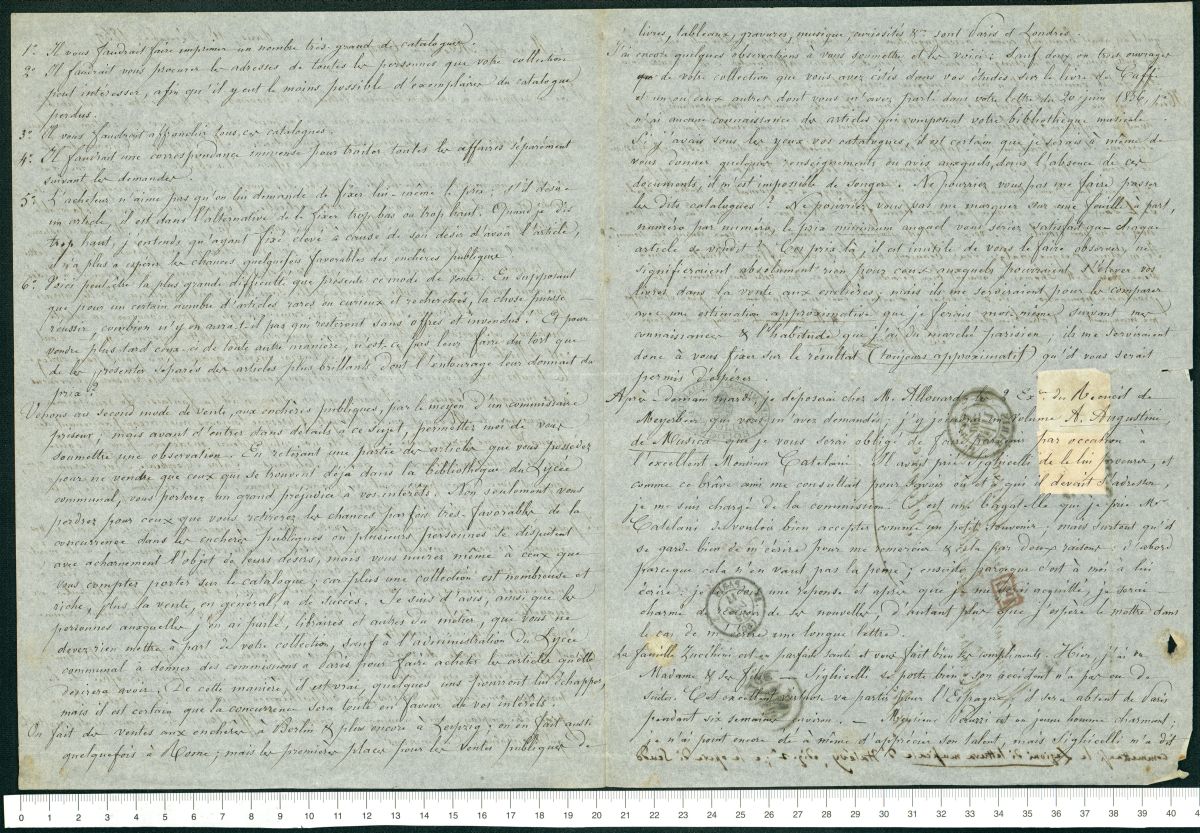 1° Il vous faudrait faire imprimer un nombre très grand de catalogues.
2° Il faudrait vous procurer les adresses de toutes les personnes que votre collection
peut intéresser, afin qu'il y eut le moins possible d'exemplaires du catalogue
perdus.
3° Il vous faudrait affranchir tous ces catalogues.
4° Il faudrait une correspondance immense pour traiter toutes les affaires séparément
suivant les demandes.
5° L'acheteur n'aime pas qu'on lui demande de fixer lui-même le prix; s'il désire
un article, il est dans l'alternative de le fixer trop bas ou trop haut. Quand je dis
trop haut, j'entends qu'ayant fixé élevé à cause de son désir d'avoir l'article,
il n'a plus à espérer les chances quelquefois favorables des enchères publiques.
6° Voici peut-être la plus grande difficulté que présente ce mode de vente. En supposant
que pour un certain nombre d'articles rares ou curieux et recherchés, la chose puisse
réussir, combien n'y en aura-t-il pas qui resteront sans offres et invendus? Et pour
vendre plus tard ceux-ci de toute autre manière, n'est-ce pas leur faire du tort que
de les présenter séparés des articles plus brillants dont l'entourage leur donnait du
prix?
Venons au second mode de vente, aux enchères publiques, par le moyen d'un commissaire
priseur; mais avant d'entrer dans détails à ce sujet, permettez moi de vous
soumettre une observation. En retirant une partie des articles que vous possédez
pour ne vendre que ceux qui se trouvent déjà dans la bibliothèque du Lycée
communal, vous porterez un grand préjudice à vos intérêts. Non seulement vous
perdrez pour ceux que vous retirerez les chances parfois très favorables de la
concurrence dans les enchères publiques où plusieurs personnes se disputent
avec acharnement l'objet de leurs désirs, mais vous nuirez même à ceux que
vous comptez porter sur le catalogue; car plus une collection est nombreuse et
riche, plus la vente, en général a de succès. Je suis d'avis, ainsi que les
personnes auxquelles j'en ai parlé, libraires et autres du métier, que vous ne
devez rien mettre à part de votre collection, sauf à l'administration du Lycée
communal à donner des commissions à Paris pour faire acheter les articles qu'elle
désirera avoir. De cette manière, il est vrai, quelques uns pourront lui échapper,
mais il est certain que la concurrence sera toute en faveur de vos intérêts.
On fait des ventes aux enchères à Berlin & plus encore à Leipzig; on en fait aussi
quelquefois à Rome; mais les premières places pour les ventes publiques de
livres, tableaux, gravures, musique, curiosités &c sont Paris et Londres.
J'ai encore quelques observations à vous soumettre et les voici: sauf deux ou trois ouvrages
de votre collection que vous avez cités dans vos études sur le livre de Caffi
et un ou deux autres dont vous m'avez parlé dans votre lettre du 20 juin 1856, je
n'ai aucune connaissance des articles qui composent votre bibliothèque musicale.
Si j'avais sous les yeux vos catalogues, il est certain que je serais à même de
vous donner quelques renseignements ou avis auxquels, dans l'absence de ces
documents, il m'est impossible de songer. Ne pourriez vous pas me faire passer
les dits catalogues? Ne pourriez vous pas me marquer sur une feuille à part,
numéro par numéro, le prix minimum auquel vous seriez satisfait que chaque
article se vendît? Ces prix là, il est inutile de vous le faire observer, ne
signifieraient absolument rien pour ceux auxquels pourraient s'élever vos
livres dans la vente aux enchères; mais ils me serviraient pour les comparer
avec une estimation approximative que je ferais moi-même suivant ma
connaissance & l'habitude que j'ai du marché parisien; ils me serviraient
donc à vous fixer sur le résultat (toujours approximatif) qu'il vous serait
permis d'espérer.
Après-demain mardi, je déposerai chez M. Allouard les 2 Exes du Recueil de
Meyerbeer que vous m'avez demandés; j'y joindrai volume A. Augustini
de Musica que je vous serai obligé de faire parvenir par occasion à
l'excellent Monsieur Catelani. Il avait prié Sighicelli de le lui procurer, et
comme ce brave ami me consultait pour savoir où et à qui il devait s'adresser,
je me suis chargé de la commission. C'est une bagatelle que je prie Mr
Catelani de vouloir bien accepter comme un petit souvenir; mais surtout qu'il
se garde bien de m'écrire pour me remercier & cela par deux raisons: d'abord
parceque cela n'en vaut pas la peine; ensuite parceque c'est à moi à lui
écrire: je lui une réponse et après que je m'en acquitté, je serai
charmé de de ses nouvelles, d'autant plus que j'espère le mettre dans
le cas de m'écrire une longue lettre.
La famille Zucchini est en parfaite santé et vous fait bien des compliments.
Madame & ses Sighicelli se porte bien; son accident n'a pas eu de
suites. Cet excellent va partir pour l'Espagne, il sera absent de Paris
pendant six semaines environ. — Monsieur est un jeune homme charmant;
je n'ai point encore été à même d'apprécier son talent, mais Sighicelli m'a dit